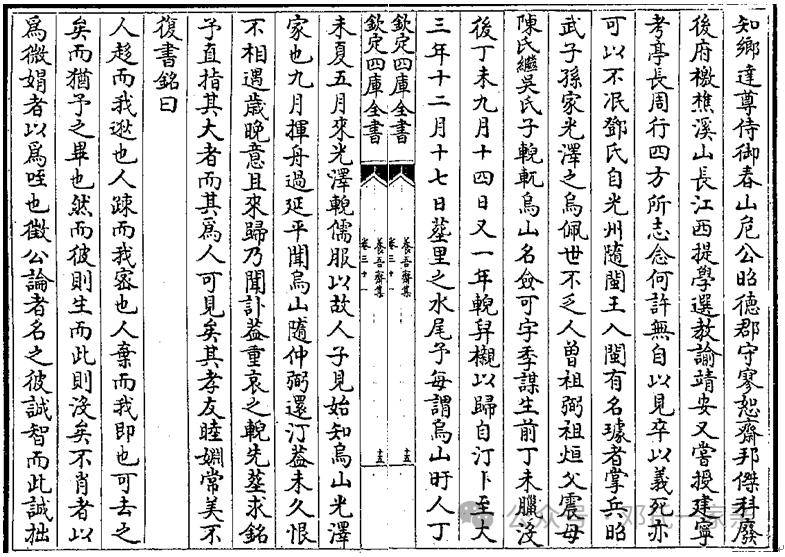 知鄉達尊侍御春山危公昭德郡守寥恕齋邦傑科廢
後府檄樵溪山長江西提學選教諭靖安又嘗授建寧
考亭長周行四方所志念何許無自以見卒以義死亦
可以不泯鄧氏自光州隨閩王入閩有名璩者掌兵昭
武子孫家光澤之烏佩世不乏人曾祖弼祖烜父震母
陳氏繼吳氏子輗軏烏山名僉可字季謀生前丁未臘沒
後丁未九月十四日又一年輗舁櫬以歸自汀卜至大
三年十二月十七日塟里之水尾予每謂烏山旴人丁
欽定四庫全書
養吾齋集
卷三十一
十五
欽定四庫全書
養吾齋集
卷三十一
十五
未夏五月來光澤輗儒服以故人子見始知烏山光澤
家也九月揮舟過延平聞烏山隨仲弼還汀葢未久恨
不相遇歲晚意且來歸乃聞訃葢重哀之輗先塟求銘
予直指其大者而其爲人可見矣其孝友睦婣常美不
復書銘曰
人趍而我逖也人踈而我宻也人棄而我即也可去之
矣而猶予之畢也然而彼則生而此則沒矣不肖者以
爲微娟者以爲咥也徵公論者名之彼誠智而此誠拙
公众号
邓氏一家亲